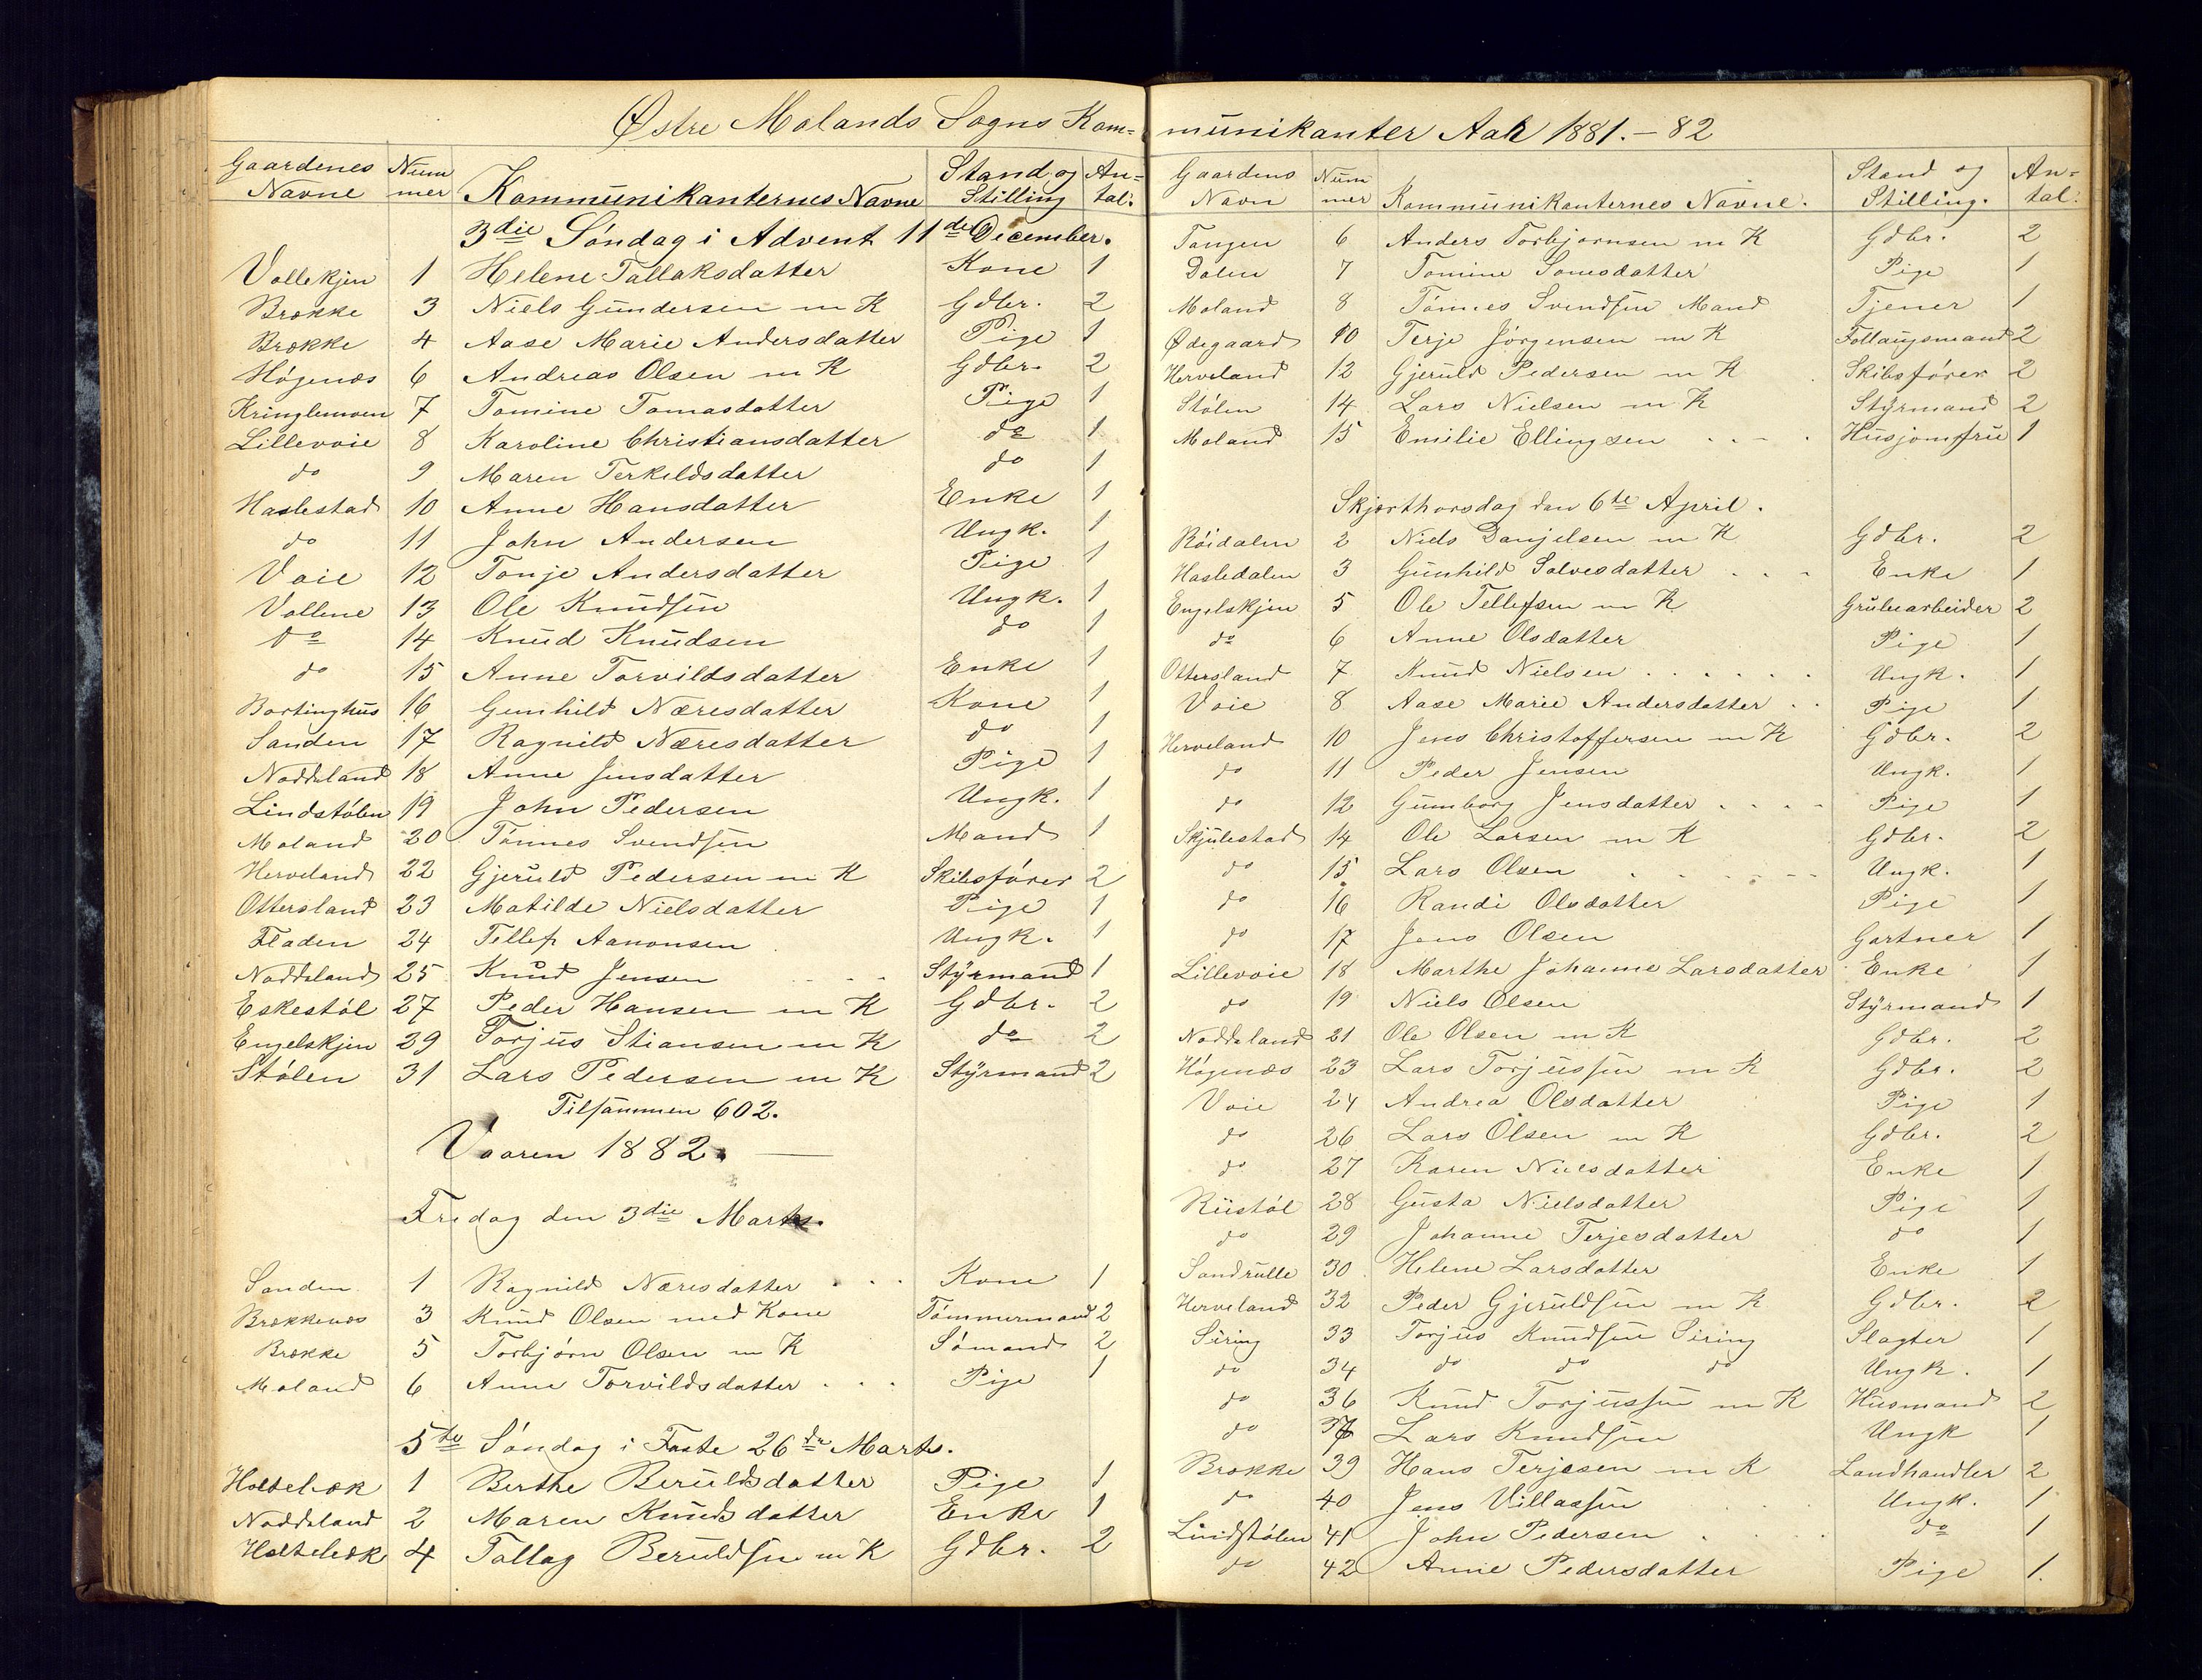 Østre Molands Sogns Kom-
Gaardenes Navne | Nummer | Kommunikanternes Navne | Stand og Stilling | Antal.
3die Søndag i Advent 11de December.
Vollekjen 1 Helene Tallaksdatter Kone 1
Brække 3 Niels Gundersen m K Gdbr. 2
Brække 4 Aase Marie Andersdatter Pige 1
Høgenæs 6 Andreas Olsen m K Gdbr. 2
Kringlemoen 7 Tomine Tomasdatter Pige 1
Lillevoie 8 Karoline Christiansdatter do 1
do 9 Maren Terkildsdatter do 1
Haslestad 10 Anne Hansdatter Enke 1
do 11 John Andersen Ungk. 1
Voie 12 Tonje Andersdatter Pige 1
Vollene 13 Ole Knudsen Ungk. 1
do 14 Knud Knudsen do 1
do 15 Anne Torvildsdatter Enke 1
Bortinghus 16 Gunhild Næresdatter Kone 1
Sanden 17 Ragnild Næresdatter do 1
Noddeland 18 Anne Jensdatter Pige 1
Lindstølen 19 John Pedersen Ungk. 1
Moland 20 Tønnes Svendsen Mand 1
Herveland 22 Gjeruld Pedersen m K Skibsfører 2
Ottersland 23 Matilde Nielsdatter Pige 1
Fladen 24 Tellef Aanonsen Ungk. 1
Noddeland 25 Knud Jensen Styrmand 1
Eskestøl 27 Peder Hansen m K Gdbr. 2
Engelskjen 29 Torjus Stiansen m K do 2
Stølen 31 Lars Pedersen m K Styrmand 2
Tilsammen 602.
Vaaren 1882.
Fredag den 3die Marts.
Sanden 1 Ragnild Næresdatter Kone 1
Brækkenæs 3 Knud Olsen med Kone Tømmermand 2
Brække 5 Torbjørn Olsen m K Sømand 2
Moland 6 Anne Torvildsdatter Pige 1
5te Søndag i Faste 26de Marts.
Holtebæk 1 Berthe Beruldsdatter Pige 1
Noddeland 2 Maren Knudsdatter Enke 1
Holtebæk 4 Tallag Beruldsen m K Gdbr. 2
munikanter Aar 1881.-82
Gaardens Navn | Nummer | Kommunikanternes Navne. | Stand og Stilling. | Antal.
Tangen 6 Anders Torbjørnsen m K Gdbr. 2
Dalen 7 Tomine Tomesdatter Pige 1
Moland 8 Tønnes Svendsen Mand Tjener 1
Ødegaard 10 Terje Jørgensen m K Føllaugsmand 2
Herveland 12 Gjeruld Pedersen m K Skibsfører 2
Stølen 14 Lars Nielsen m K Styrmand 2
Moland 15 Emilie Ellingsen Husjomfru 1
Skjærthorsdag den 6te April.
Røidalen 2 Niels Danjelsen m K Gdbr. 2
Hasledalen 3 Gunhild Salvesdatter Enke 1
Engelskjen 5 Ole Tellefsen m K Grubearbeider 2
do 6 Anne Olsdatter Pige 1
Ottersland 7 Knud Nielsen Ungk. 1
Voie 8 Aase Marie Andersdatter Pige 1
Herveland 10 Jens Christoffersen m K Gdbr. 2
do 11 Peder Jensen Ungk. 1
do 12 Gumborg Jensdatter Pige 1
Skjulestad 14 Ole Larsen m K Gdbr. 2
do 15 Lars Olsen Ungk. 1
do 16 Randi Olsdatter Pige 1
do 17 Jens Olsen Gartner 1
Lillevoie 18 Marthe Johanne Larsdatter Enke 1
do 19 Niels Olsen Styrmand 1
Noddeland 21 Ole Olsen m K Gdbr. 2
Høgenæs 23 Lars Torjussen m K Gdbr. 2
Voie 24 Andrea Olsdatter Pige 1
do 26 Lars Olsen m K Gdbr. 2
do 27 Karen Nielsdatter Enke 1
Riistøl 28 Gusta Nielsdatter Pige 1
do 29 Johanne Terjesdatter do 1
Sandrulle 30 Helene Larsdatter Enke 1
Herveland 32 Peder Gjeruldsen m K Gdbr. 2
Siring 33 Torjus Knudsen Siring Slagter 1
do 34 do do do Ungk. 1
do 36 Knud Torjussen m K Husmand 2
do 37 Lars Knudsen Ungk 1
Brække 39 Hans Terjesen m K Landhandler 2
do 40 Jens Villassen Ungk. 1
Lindstølen 41 John Pedersen do 1
do 42 Anne Pedersdatter Pige 1.